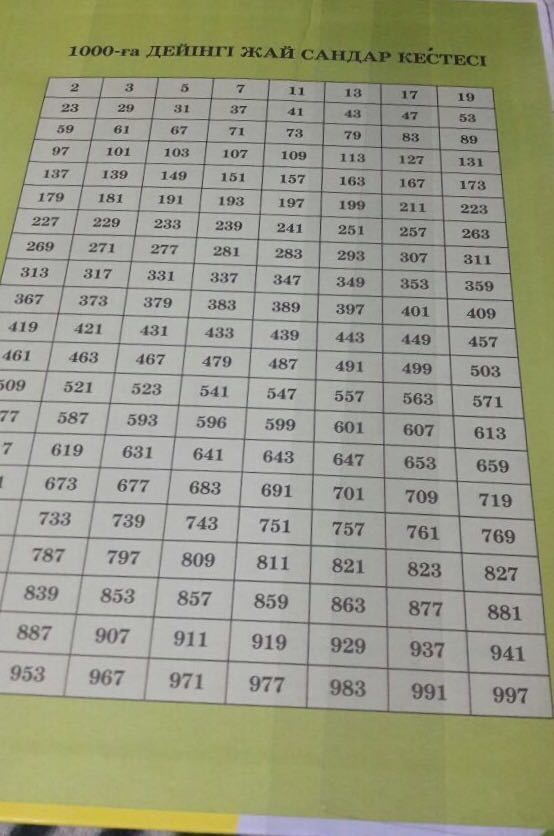 1000-ға ДЕЙІНГІ ЖАЙ САНДАР КЕСТЕСІ
2 3 5 7 11 13 17 19
23 29 31 37 41 43 47 53
59 61 67 71 73 79 83 89
97 101 103 107 109 113 127 131
137 139 149 151 157 163 167 173
179 181 191 193 197 199 211 223
227 229 233 239 241 251 257 263
269 271 277 281 283 293 307 311
313 317 331 337 347 349 353 359
367 373 379 383 389 397 401 409
419 421 431 433 439 443 449 457
461 463 467 479 487 491 499 503
509 521 523 541 547 557 563 571
77 587 593 596 599 601 607 613
7 619 631 641 643 647 653 659
673 677 683 691 701 709 719
733 739 743 751 757 761 769
787 797 809 811 821 823 827
839 853 857 859 863 877 881
887 907 911 919 929 937 941
953 967 971 977 983 991 997